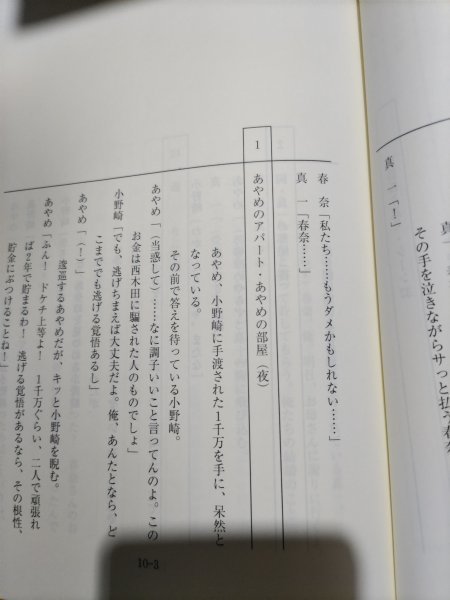 真一
その手を泣きながらサっと払う春奈
真　一「！」
春　奈「私たち……もうダメかもしれない……」
真　一「春奈……」
1　あやめのアパート・あやめの部屋（夜）
あやめ、小野崎に手渡された１千万を手に、呆然と
なっている。
その前で答えを待っている小野崎。
あやめ「（当惑して）……なに調子いいこと言ってんのよ。この
お金は西木田に騙された人のものでしょ」
小野崎「でも、逃げちまえば大丈夫だよ。俺、あんたとなら、ど
こまででも逃げる覚悟あるし」
あやめ「（！）」
逡巡するあやめだが、キッと小野崎を睨む。
あやめ「ふん！　ドケチ上等よ！　１千万ぐらい、二人で頑張れ
ば２年で貯まるわ！　逃げる覚悟があるなら、その根性、
貯金にぶつけることね！」
10-3